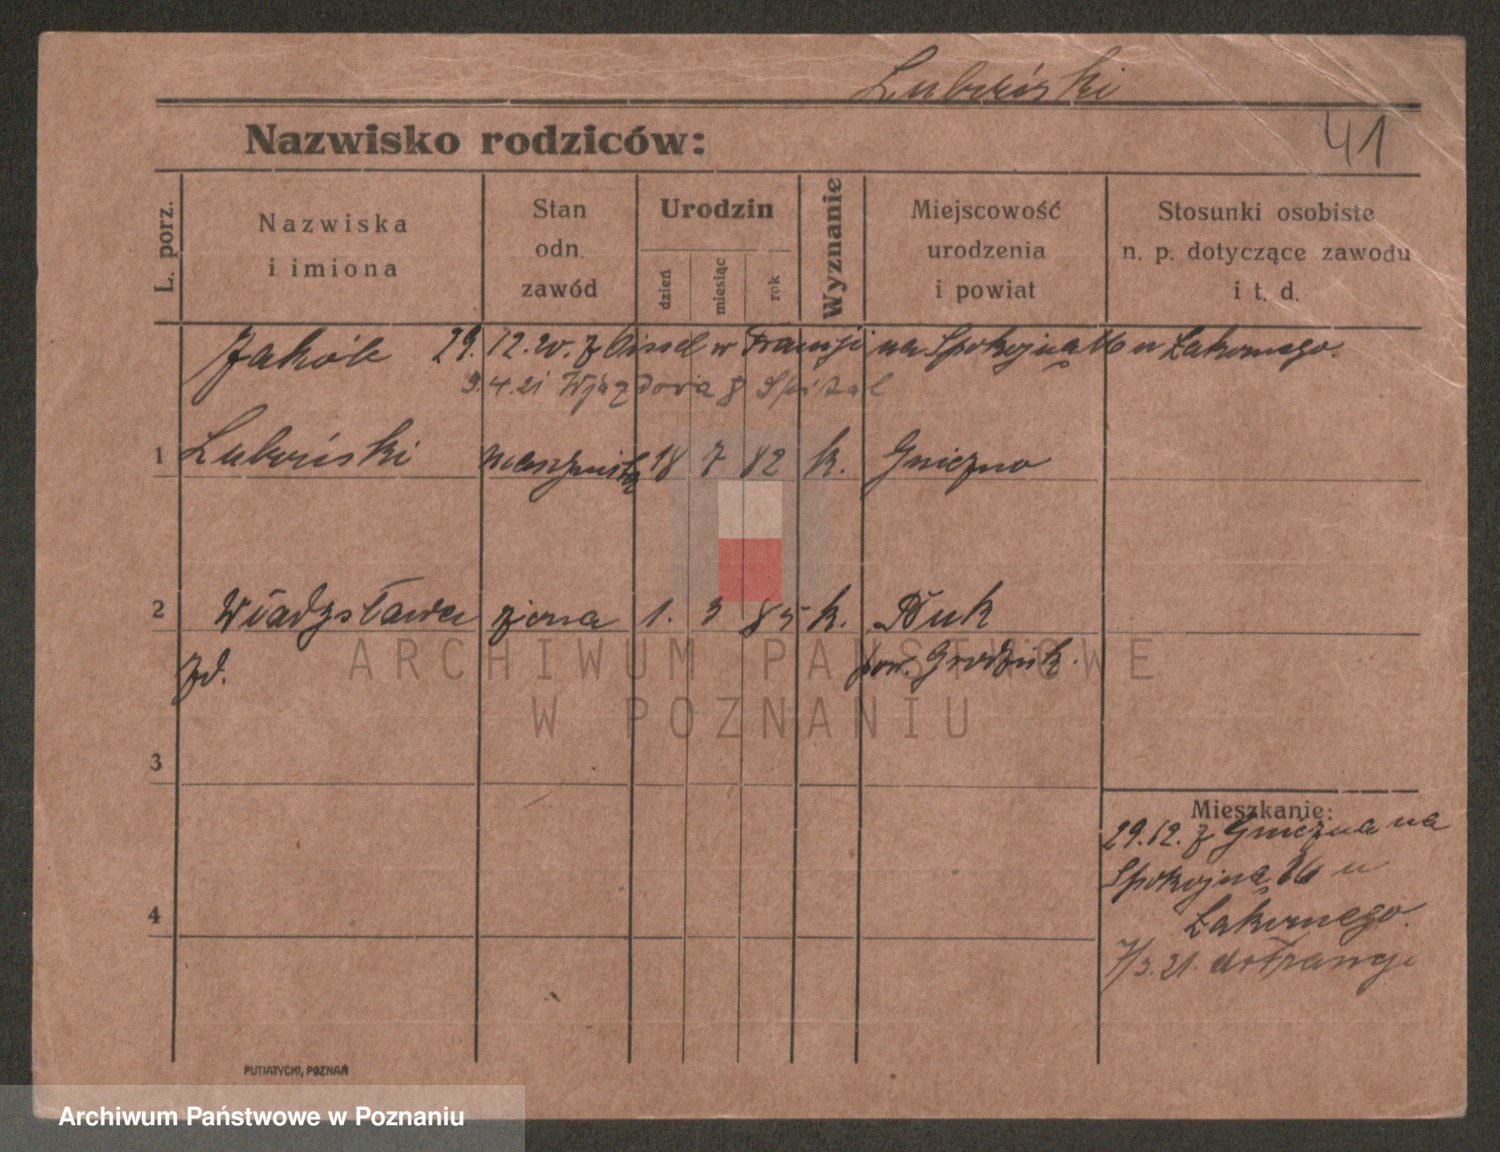 Luboński
Nazwisko rodziców:
41
L. porz.
Nazwiska
i imiona
Stan
odn.
zawód
Urodzin
dzień
miesiąc
rok
Wyznanie
Miejscowość
urodzenia
i powiat
Stosunki osobiste
n. p. dotyczące zawodu
i t. d.
Jakób 29. 12. 20. z w Francji na Spokojną 16 u Łakomego.
9.4.21 Wjazdowa 8 Szpital
1 Luboński 18 7 82 k. Gniezno
2 Władysława żona 1. 3 85 k. Buk
zd. pow. Grodzisk.
ARCHIWUM PAŃSTWOWE
W POZNANIU
3
Mieszkanie:
29.12. z Gniezna na
Spokojną 16 u
4 Łakomego.
7/3.21. do Francji
PUTIATYCKI, POZNAŃ
Archiwum Państwowe w Poznaniu